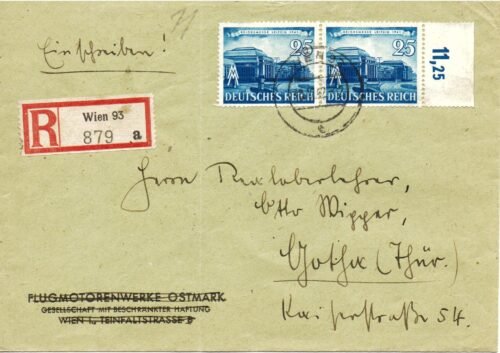 71
Einschreiben!
REICHSMESSE LEIPZIG 1941
25
DEUTSCHES REICH
REICHSMESSE LEIPZIG 1941
25
DEUTSCHES REICH
11,25
R
Wien 93
879 a
Herrn Realoberlehrer,
Otto Wipper,
Gotha (Thür.)
Kaiserstraße 54.
FLUGMOTORENWERKE OSTMARK
GESELLSCHAFT MIT BESCHRÄNKTER HAFTUNG
WIEN I., TEINFALTSTRASSE 8